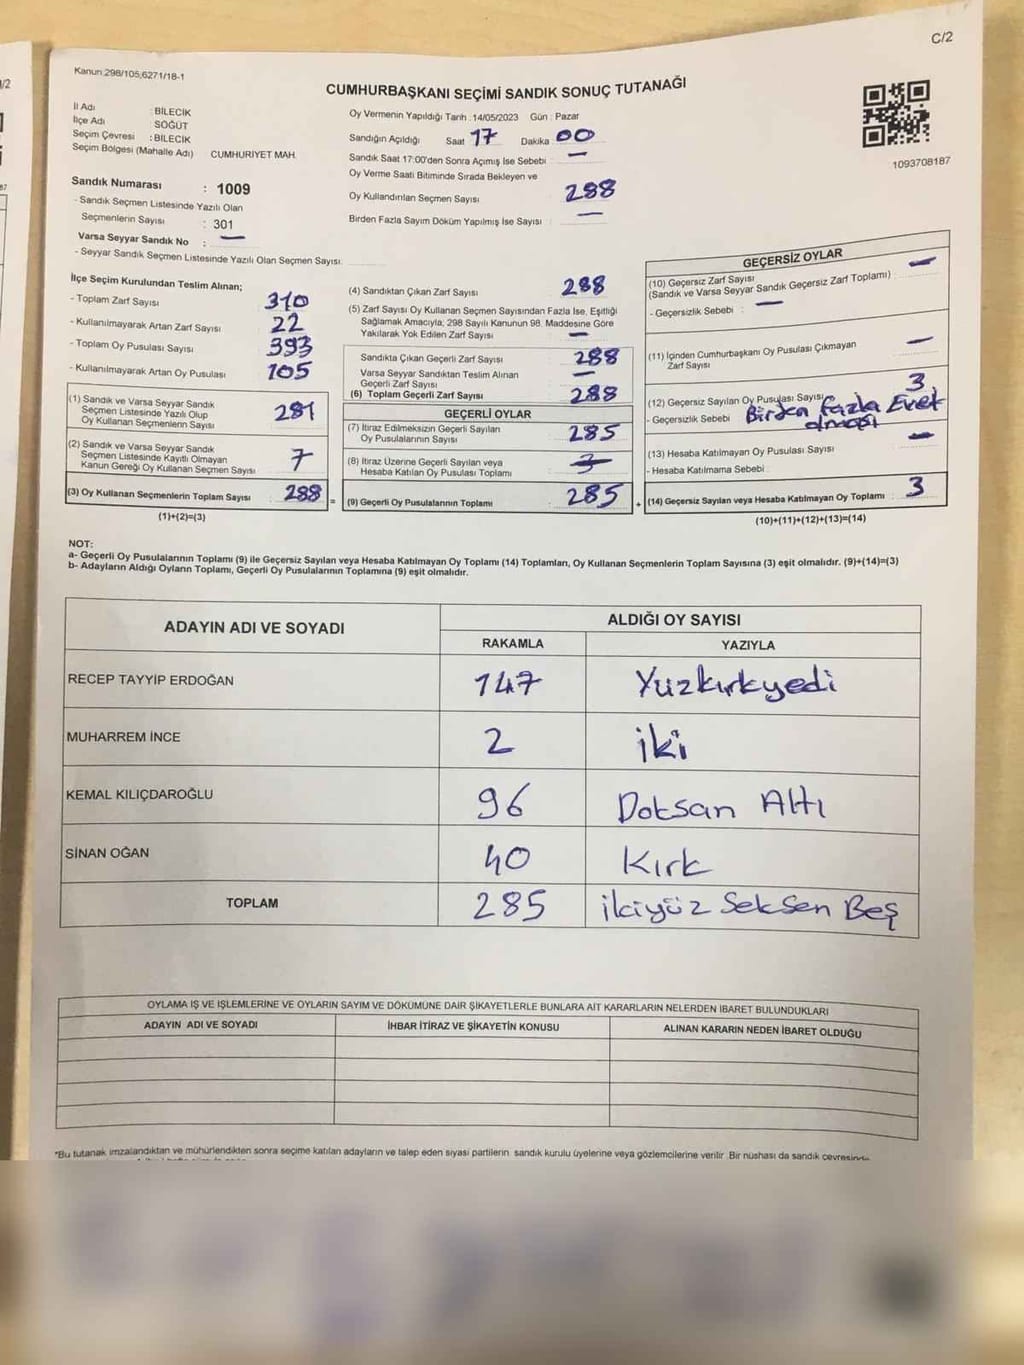 C/2
Kanun:298/105,6271/18-1
CUMHURBAŞKANI SEÇİMİ SANDIK SONUÇ TUTANAĞI
İl Adı : BİLECİK
İlçe Adı SÖĞÜT
Seçim Çevresi : BİLECİK
Seçim Bölgesi (Mahalle Adı) CUMHURİYET MAH.
Oy Vermenin Yapıldığı Tarih : 14/05/2023 Gün : Pazar
Sandığın Açıldığı Saat 17 Dakika 00
Sandık Saat 17:00'den Sonra Açımış İse Sebebi : —
Oy Verme Saati Bitiminde Sırada Bekleyen ve
Oy Kullandırılan Seçmen Sayısı 288
Birden Fazla Sayım Döküm Yapılmış İse Sayısı : —
1093708187
Sandık Numarası : 1009
- Sandık Seçmen Listesinde Yazılı Olan
Seçmenlerin Sayısı : 301
Varsa Seyyar Sandık No : —
- Seyyar Sandık Seçmen Listesinde Yazılı Olan Seçmen Sayısı:
İlçe Seçim Kurulundan Teslim Alınan;
- Toplam Zarf Sayısı 310
- Kullanılmayarak Artan Zarf Sayısı 22
- Toplam Oy Pusulası Sayısı 393
- Kullanılmayarak Artan Oy Pusulası 105
(1) Sandık ve Varsa Seyyar Sandık
Seçmen Listesinde Yazılı Olup
Oy Kullanan Seçmenlerin Sayısı 281
(2) Sandık ve Varsa Seyyar Sandık
Seçmen Listesinde Kayıtlı Olmayan
Kanun Gereği Oy Kullanan Seçmen Sayısı 7
(3) Oy Kullanan Seçmenlerin Toplam Sayısı 288
(1)+(2)=(3)
(4) Sandıktan Çıkan Zarf Sayısı 288
(5) Zarf Sayısı Oy Kullanan Seçmen Sayısından Fazla İse, Eşitliği
Sağlamak Amacıyla; 298 Sayılı Kanunun 98. Maddesine Göre
Yakılarak Yok Edilen Zarf Sayısı —
Sandıkta Çıkan Geçerli Zarf Sayısı 288
Varsa Seyyar Sandıktan Teslim Alınan
Geçerli Zarf Sayısı —
(6) Toplam Geçerli Zarf Sayısı 288
GEÇERLİ OYLAR
(7) İtiraz Edilmeksizin Geçerli Sayılan
Oy Pusulalarının Sayısı 285
(8) İtiraz Üzerine Geçerli Sayılan veya
Hesaba Katılan Oy Pusulası Toplamı
= (9) Geçerli Oy Pusulalarının Toplamı 285
GEÇERSİZ OYLAR
(10) Geçersiz Zarf Sayısı —
(Sandık ve Varsa Seyyar Sandık Geçersiz Zarf Toplamı)
- Geçersizlik Sebebi : —
(11) İçinden Cumhurbaşkanı Oy Pusulası Çıkmayan
Zarf Sayısı —
(12) Geçersiz Sayılan Oy Pusulası Sayısı 3
- Geçersizlik Sebebi Birden Fazla Evet
olması
(13) Hesaba Katılmayan Oy Pusulası Sayısı —
- Hesaba Katılmama Sebebi :
+ (14) Geçersiz Sayılan veya Hesaba Katılmayan Oy Toplamı : 3
(10)+(11)+(12)+(13)=(14)
NOT:
a- Geçerli Oy Pusulalarının Toplamı (9) ile Geçersiz Sayılan veya Hesaba Katılmayan Oy Toplamı (14) Toplamları, Oy Kullanan Seçmenlerin Toplam Sayısına (3) eşit olmalıdır. (9)+(14)=(3)
b- Adayların Aldığı Oyların Toplamı, Geçerli Oy Pusulalarının Toplamına (9) eşit olmalıdır.
ADAYIN ADI VE SOYADI ALDIĞI OY SAYISI
RAKAMLA YAZIYLA
RECEP TAYYİP ERDOĞAN 147 Yüzkırkyedi
MUHARREM İNCE 2 iki
KEMAL KILIÇDAROĞLU 96 Doksan Altı
SİNAN OĞAN 40 Kırk
TOPLAM 285 ikiyüz Seksen Beş
OYLAMA İŞ VE İŞLEMLERİNE VE OYLARIN SAYIM VE DÖKÜMÜNE DAİR ŞİKAYETLERLE BUNLARA AİT KARARLARIN NELERDEN İBARET BULUNDUKLARI
ADAYIN ADI VE SOYADI İHBAR İTİRAZ VE ŞİKAYETİN KONUSU ALINAN KARARIN NEDEN İBARET OLDUĞU
*Bu tutanak imzalandıktan ve mühürlendikten sonra seçime katılan adayların ve talep eden siyasi partilerin sandık kurulu üyelerine veya gözlemcilerine verilir. Bir nüshası da sandık çevresinde